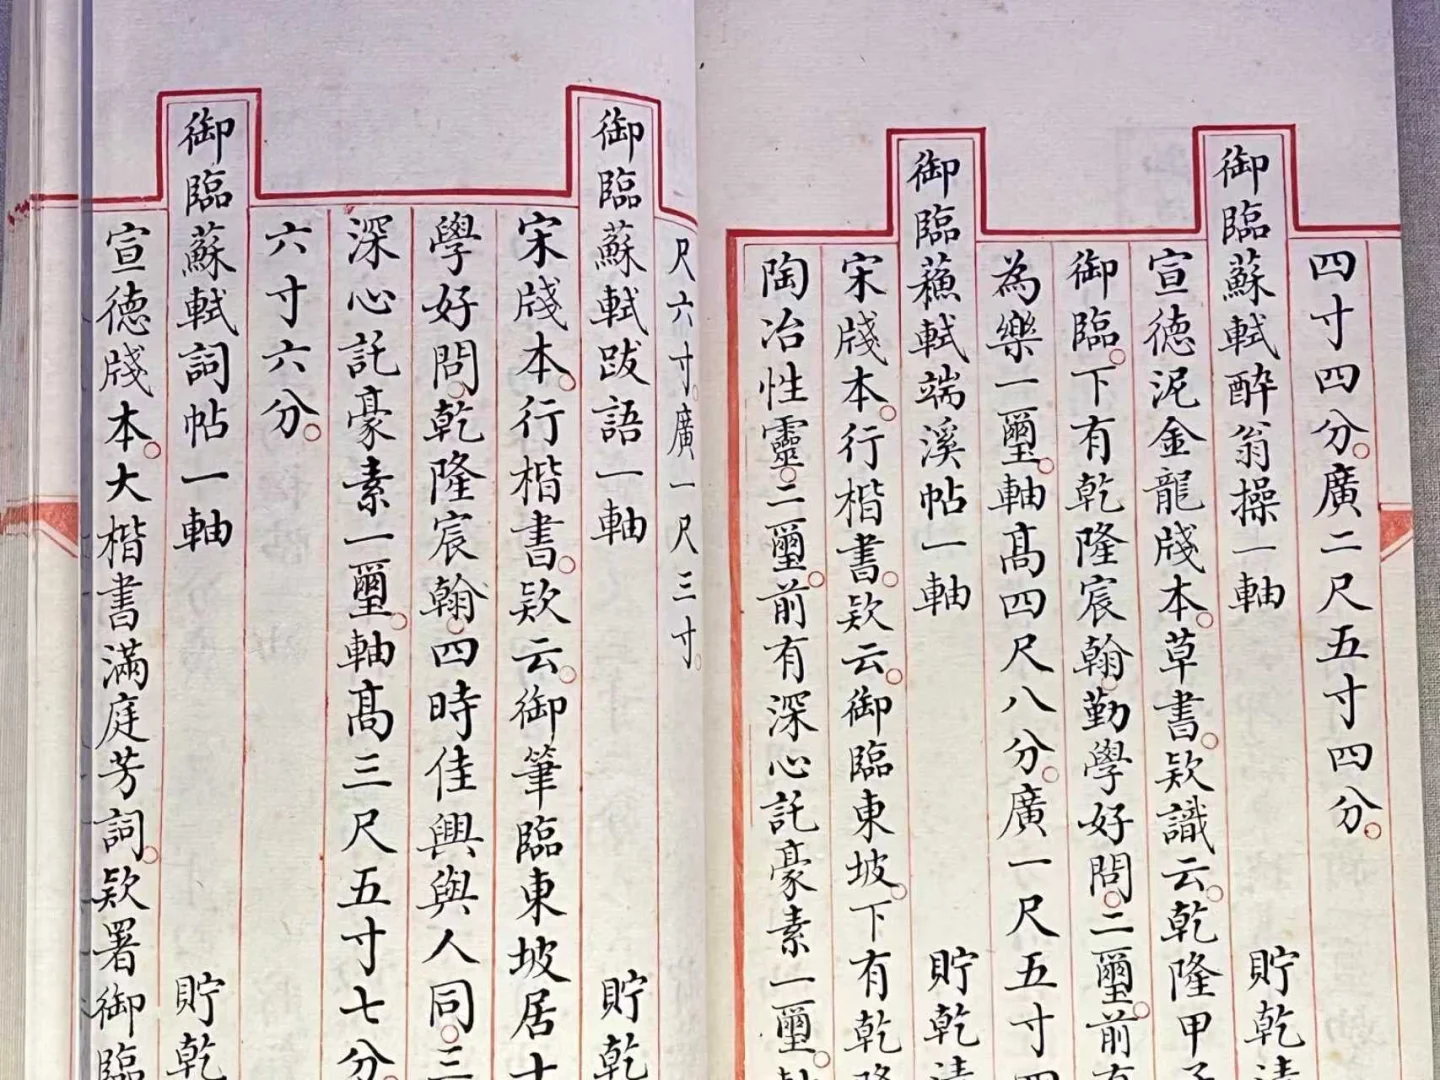 四寸四分。廣二尺五寸四分。
御臨蘇軾醉翁操一軸 貯乾清
宣德泥金龍牋本。草書。款識云。乾隆甲子
御臨。下有乾隆宸翰。勤學好問。二璽。前有
為樂一璽。軸高四尺八分。廣一尺五寸四
御臨蘓軾端溪帖一軸 貯乾清
宋牋本。行楷書。款云。御臨東坡。下有乾隆
陶冶性靈。二璽。前有深心託豪素一璽。軸
尺六寸。廣一尺三寸。
御臨蘇軾跋語一軸 貯乾
宋牋本。行楷書。款云。御筆臨東坡居士
學好問。乾隆宸翰。四時佳興與人同。三
深心託豪素一璽。軸高三尺五寸七分。
六寸六分。
御臨蘇軾詞帖一軸 貯乾
宣德牋本。大楷書滿庭芳詞。款署御臨